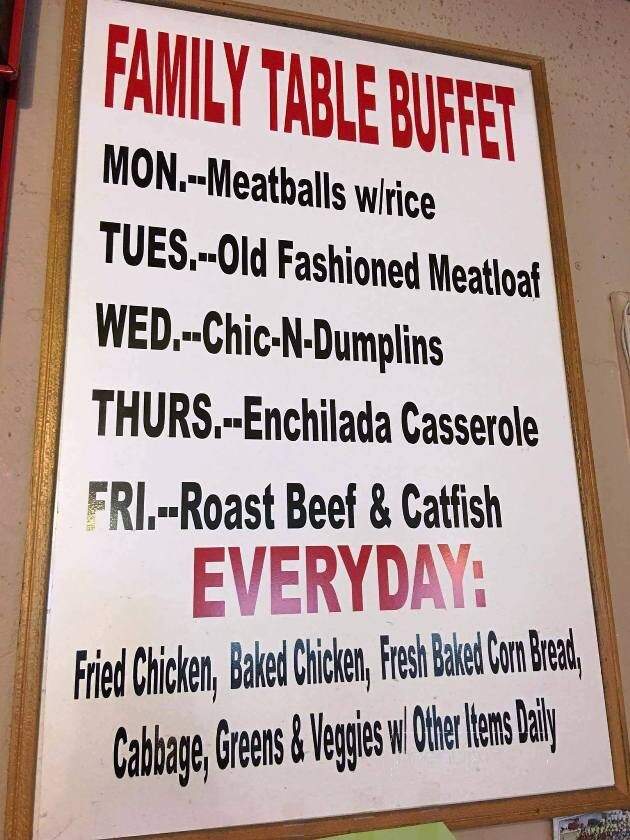 FAMILY TABLE BUFFET
MON.--Meatballs w/rice
TUES.--Old Fashioned Meatloaf
WED.--Chic-N-Dumplins
THURS.--Enchilada Casserole
FRI.--Roast Beef & Catfish
EVERYDAY:
Fried Chicken, Baked Chicken, Fresh Baked Corn Bread,
Cabbage, Greens & Veggies w/ Other Items Daily